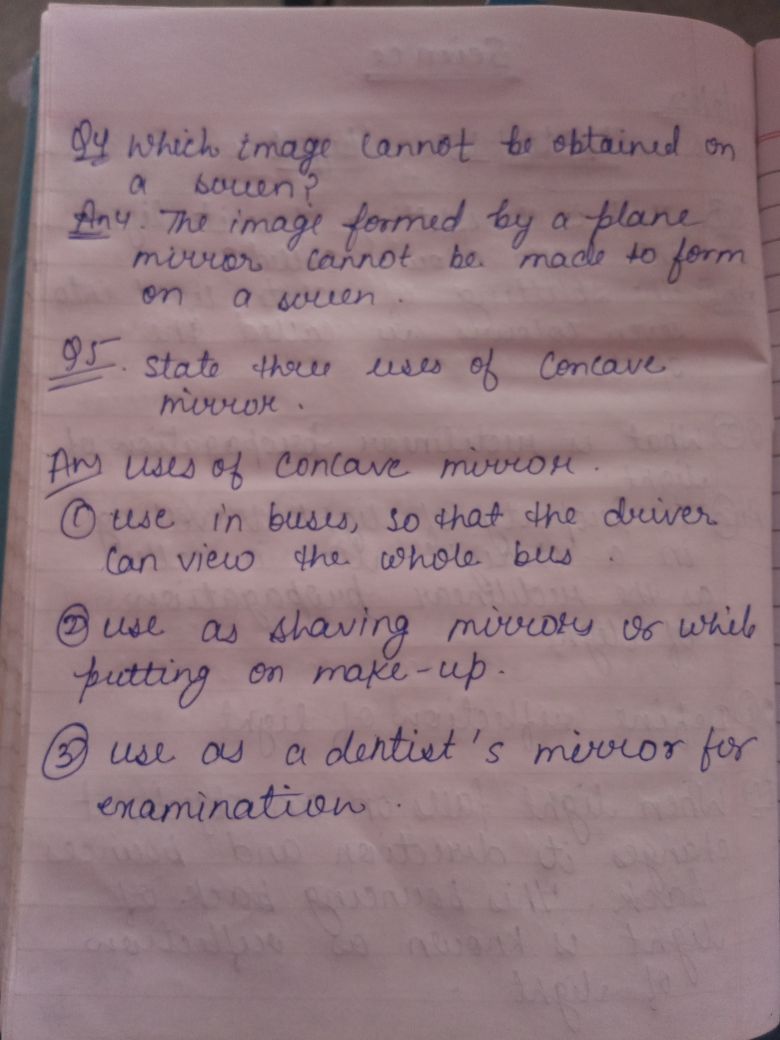 Q4 Which image cannot be obtained on
a screen?
An4. The image formed by a plane
mirror cannot be made to form
on a screen.
Q5. State three uses of Concave
mirror.
Ans Uses of Concave mirror.
① use in buses, so that the driver
can view the whole bus.
② use as shaving mirrors or while
putting on make-up.
③ use as a dentist's mirror for
examination.